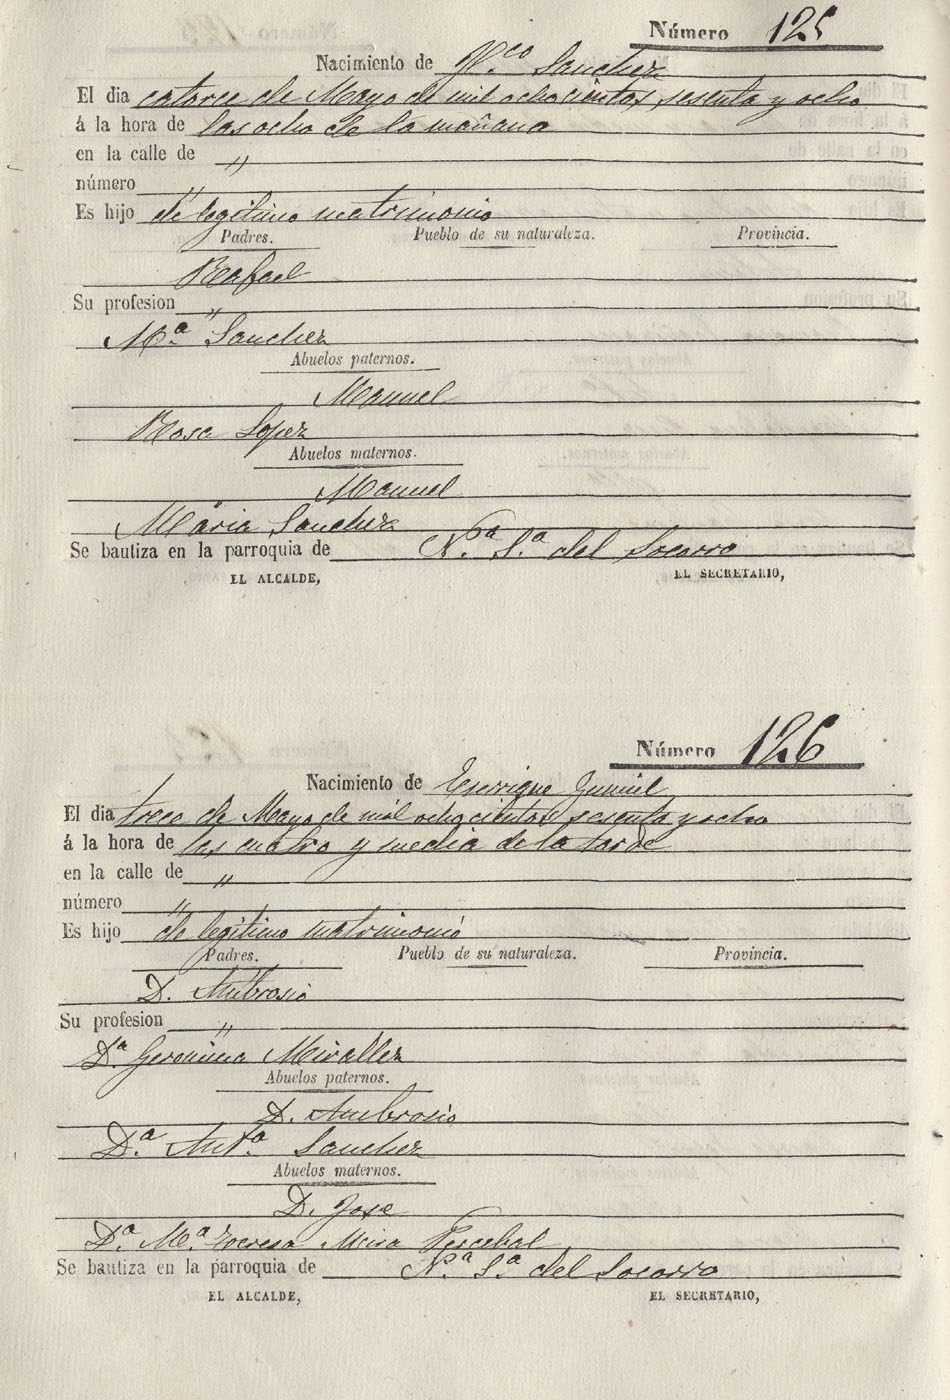 Número 125
Nacimiento de Fr.co Sanchez
El dia catorce de Mayo de mil ochocientos sesenta y ocho
á la hora de las ocho de la mañana
en la calle de "
número "
Es hijo de legitimo matrimonio
Padres. Pueblo de su naturaleza. Provincia.
Rafael
Su profesion "
M.ª Sanchez
Abuelos paternos.
Manuel
Rosa Lopez
Abuelos maternos.
Manuel
Maria Sanchez
Se bautiza en la parroquia de N.ª S.ª del Socorro
EL ALCALDE, EL SECRETARIO,
Número 126
Nacimiento de Enrrique
El dia trece de Mayo de mil ochocientos sesenta y ocho
á la hora de las cuatro y media de la tarde
en la calle de "
número "
Es hijo de legitimo matrimonio
Padres. Pueblo de su naturaleza. Provincia.
D. Ambrosio
Su profesion "
D.ª Geronima Miralles
Abuelos paternos.
D. Ambrosio
D.ª Ant.ª Sanchez
Abuelos maternos.
D. Jose
D.ª M.ª Teresa Mira Percebal
Se bautiza en la parroquia de N.ª S.ª del Socorro
EL ALCALDE, EL SECRETARIO,